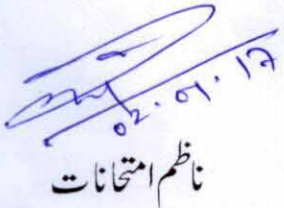 02.01.17
ناظم امتحانات